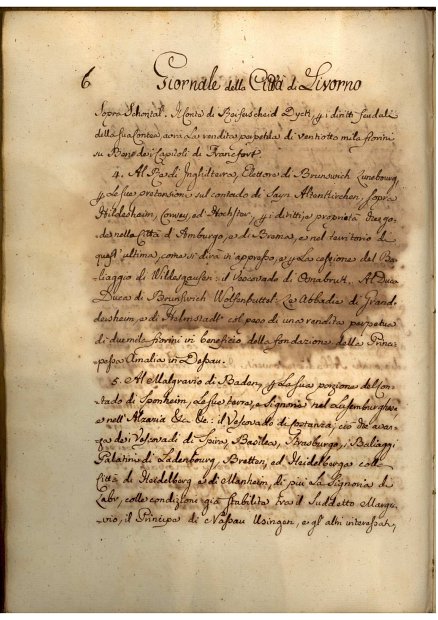 6 Giornale della Città di Livorno
sopra Schontal. Il Conte di Reifuscheid Dyck p i diritti feudali
della sua Contea avrà la rendita perpetua di ventiotto mila fiorini
su Beni dei Capitoli di Francfort
4. Al Re di Inghilterra, Elettore di Brunswich Lunebourg,
p le sue pretensioni sul contado di Sayn Altenkirchen, sopra
Hildesheim, Corvey, ed Hochster, p i diritti, e proprietà che go-
de nella Città d'Amburgo, e di Brema, e nel territorio di
quest'ultima, come si dirà in appresso, e p la cessione del Ba-
liaggio di Wildesgausen: il Vescovado di Osnabruk. Al Duca
Duca di Brunswich Wolfenbuttel: Le Abbadie di Gand-
desheim, e di Helmstadt col peso di una rendita perpetua
di due mila fiorini in beneficio della fondazione della Prin-
cipessa Amalia in Dessau.
5. Al Malgravio di Baden, p la sua porzione del Con-
tado di Sponheim, le sue terre, e Signorie nel Lussemburghese
e nell'Alzazia &c. &c.: il Vescovado di Costanza, ciò che avan-
za dei Vescovadi di Spira, Basilea, Strasburgo, i Baliaggi
Palatini di Ladenbourg, Bretten, ed Heidelberga colle
Città di Heidelberg e di Manheim, di più la Signoria di
Labr, colle condizioni già stabilite tra il suddetto Margra-
vio, il Principe di Nassau Usingen, e gli altri interessati,